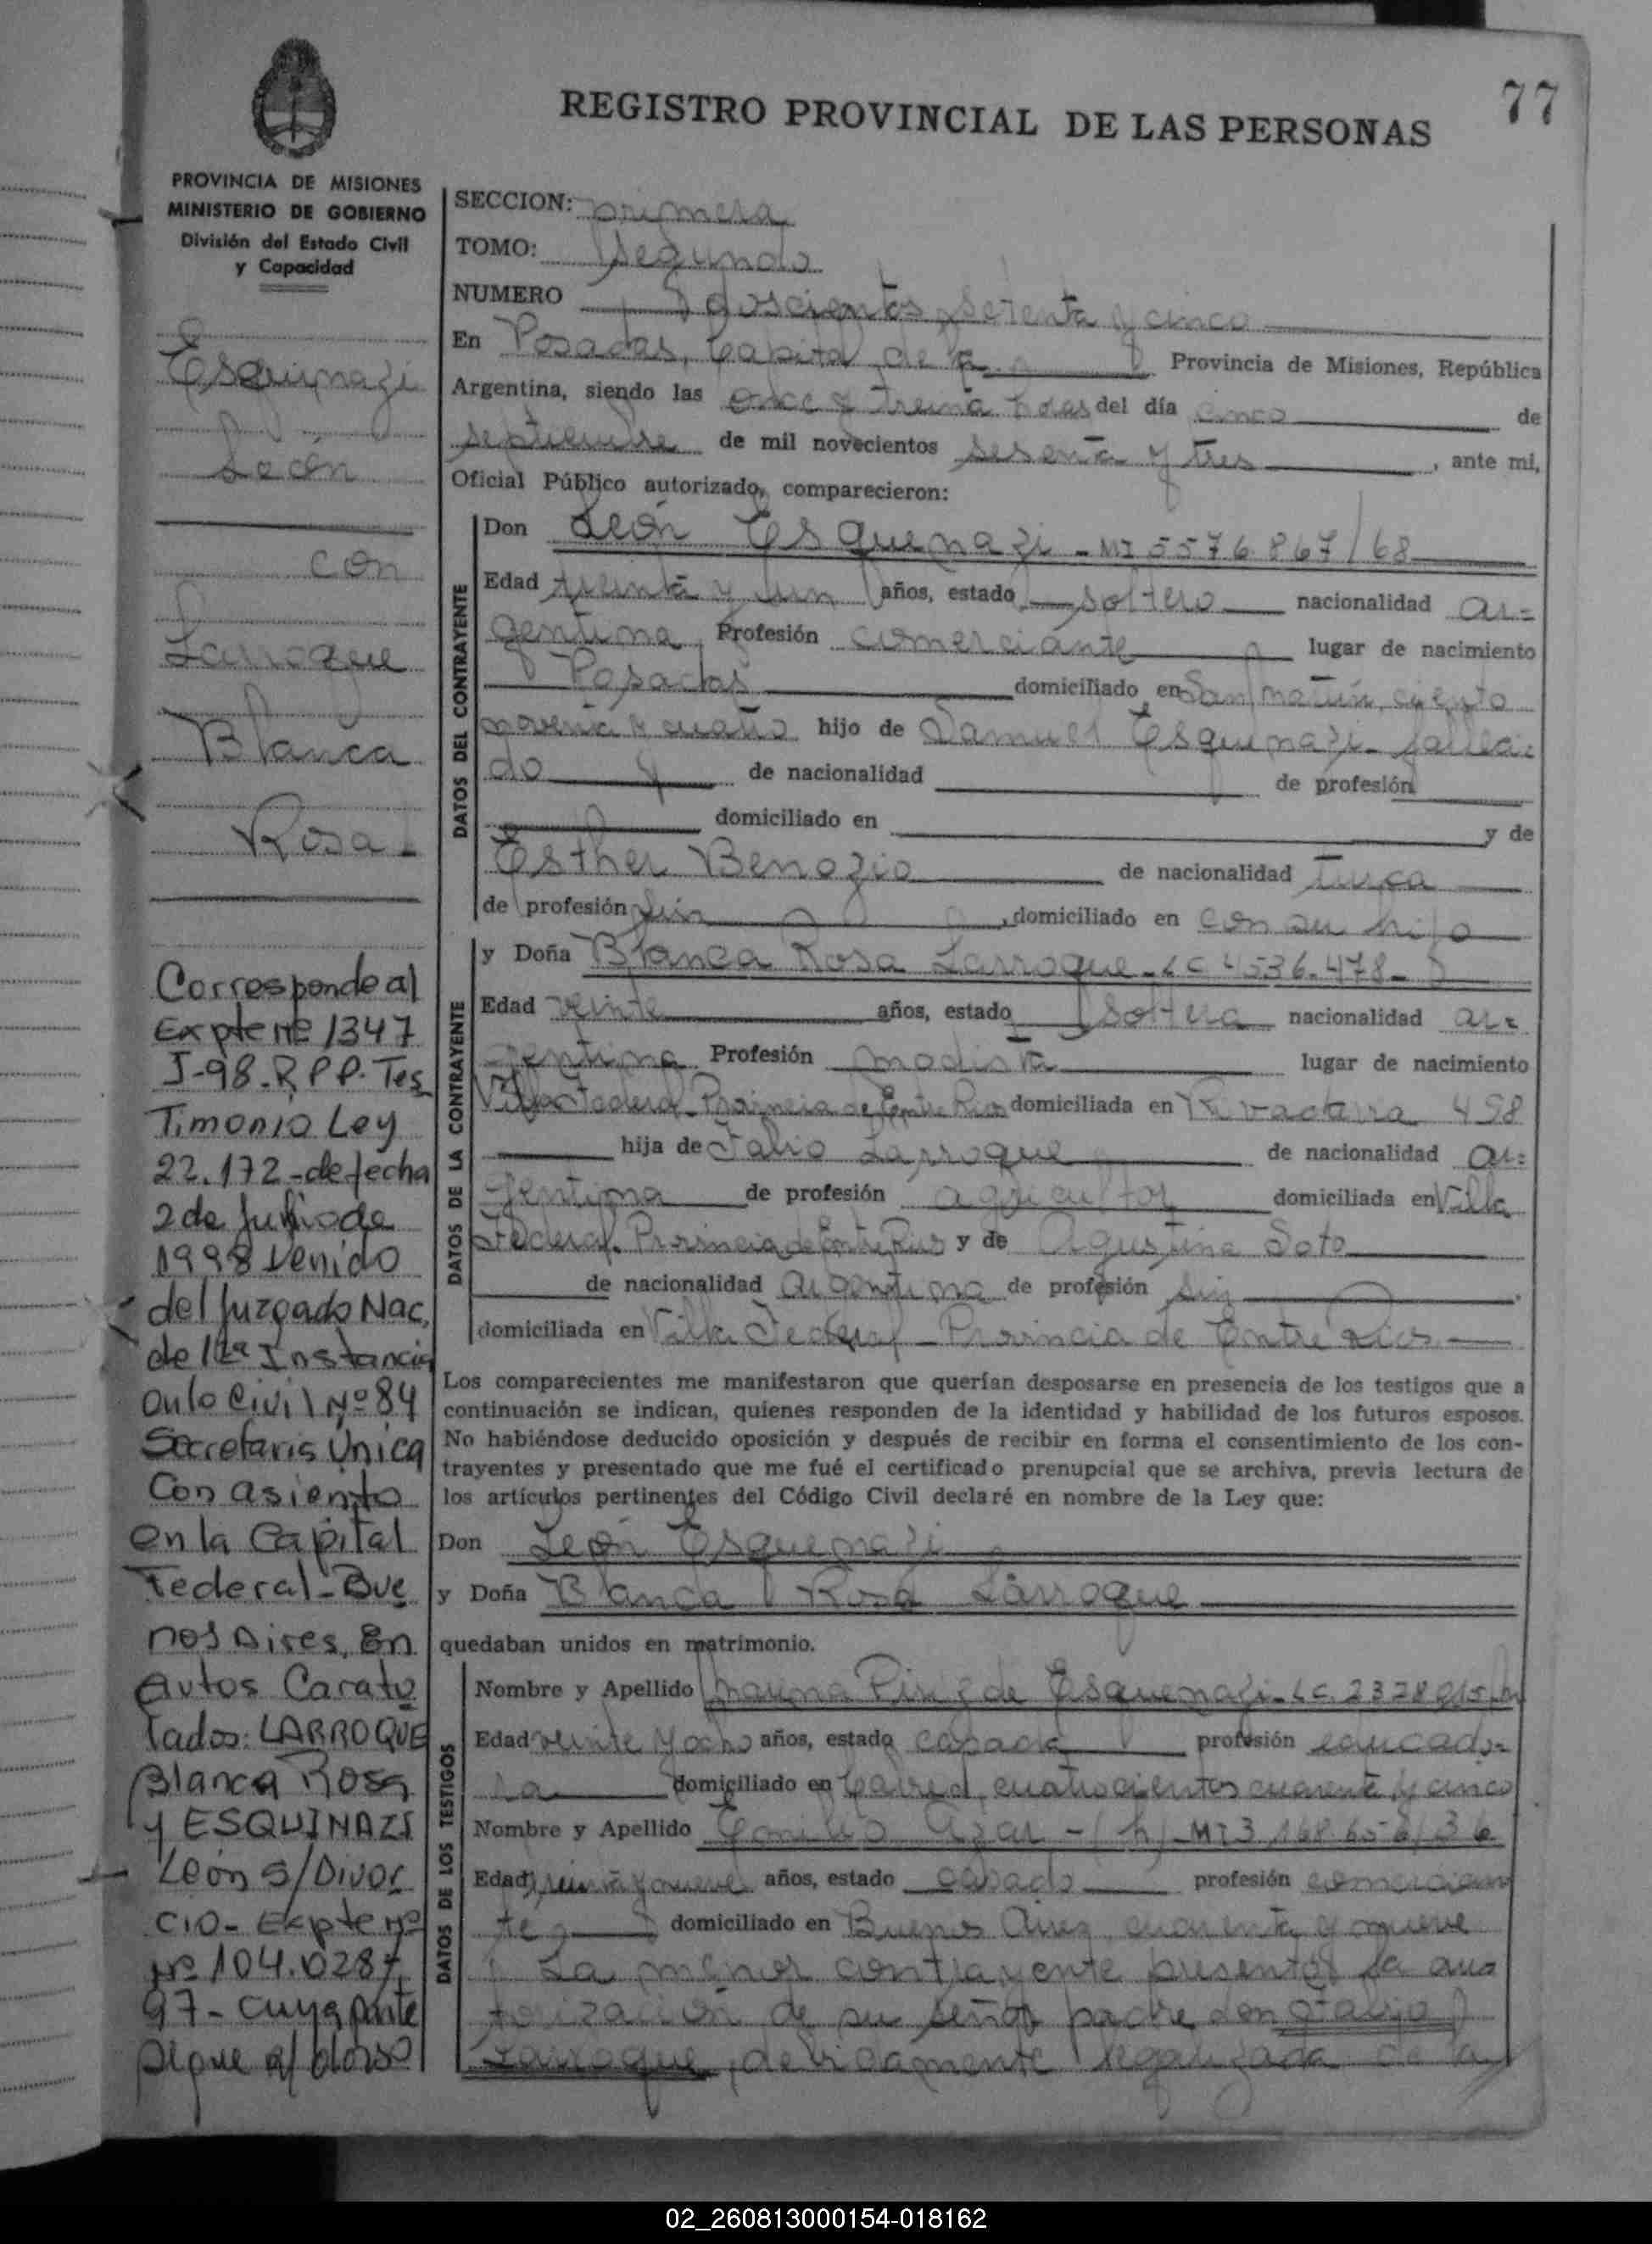 77
REGISTRO PROVINCIAL DE LAS PERSONAS
PROVINCIA DE MISIONES
MINISTERIO DE GOBIERNO
División del Estado Civil
y Capacidad
Esquinazi
León
con
Larroque
Blanca
Rosa
Corresponde al
Expte nº 1347
J-98. R.P.P. Tes
Timonio Ley
22.172 - de fecha
2 de Junio de
1998 venido
del Juzgado Nac.
de 1ª Instancia
en lo Civil Nº 84
Secretaris Unica
Con asiento
en la Capital
Federal - Bue
nos Aires, En
Autos Caratu
lados: LARROQUE
Blanca Rosa
y ESQUINAZI
León s/ Divor
cio - Expte nº
nº 104.028/
97 - cuya parte
sigue al dorso
SECCION: primera
TOMO: segundo
NUMERO doscientos setenta y cinco
En Posadas, Capital de la Provincia de Misiones, República
Argentina, siendo las once y treinta horas del día cinco de
septiembre de mil novecientos sesenta y tres, ante mi,
Oficial Público autorizado, comparecieron:
DATOS DEL CONTRAYENTE
Don León Esquenazi - MI 5576.867/68
Edad treinta y un años, estado soltero nacionalidad ar=
gentina Profesión comerciante lugar de nacimiento
Posadas domiciliado en San Martín, ciento
noventa y cuatro hijo de Samuel Esquinazi - falleci=
do de nacionalidad de profesión
domiciliado en y de
Esther Benozio de nacionalidad turca
de profesión sin, domiciliado en con su hijo
DATOS DE LA CONTRAYENTE
y Doña Blanca Rosa Larroque - LC 4536.478 -
Edad veinte años, estado soltera nacionalidad ar=
gentina Profesión modista lugar de nacimiento
Villa Federal - Provincia de Entre Rios domiciliada en Rivadavia 498
hija de Fabio Larroque de nacionalidad ar=
gentina de profesión agricultor domiciliada en Villa
Federal - Provincia de Entre Rios y de Agustina Soto
de nacionalidad argentina de profesión sin
domiciliada en Villa Federal - Provincia de Entre Rios
Los comparecientes me manifestaron que querían desposarse en presencia de los testigos que a
continuación se indican, quienes responden de la identidad y habilidad de los futuros esposos.
No habiéndose deducido oposición y después de recibir en forma el consentimiento de los con-
trayentes y presentado que me fué el certificado prenupcial que se archiva, previa lectura de
los artículos pertinentes del Código Civil declaré en nombre de la Ley que:
Don León Esquenazi
y Doña Blanca Rosa Larroque
quedaban unidos en matrimonio.
DATOS DE LOS TESTIGOS
Nombre y Apellido de Esquenazi - LC. 2378
Edad veinte y ocho años, estado casada profesión educado=
ra domiciliado en cuatrocientos cuarenta y cinco
Nombre y Apellido Emilio Azar - (h) - MI 3.168.656/36
Edad treinta y nueve años, estado casado profesión comercian
te domiciliado en Buenos Aires, cuarenta y nueve
La menor contrayente presentó la au=
torización de su señor padre don Fabio
Larroque, debidamente legalizada de la
02_260813000154-018162